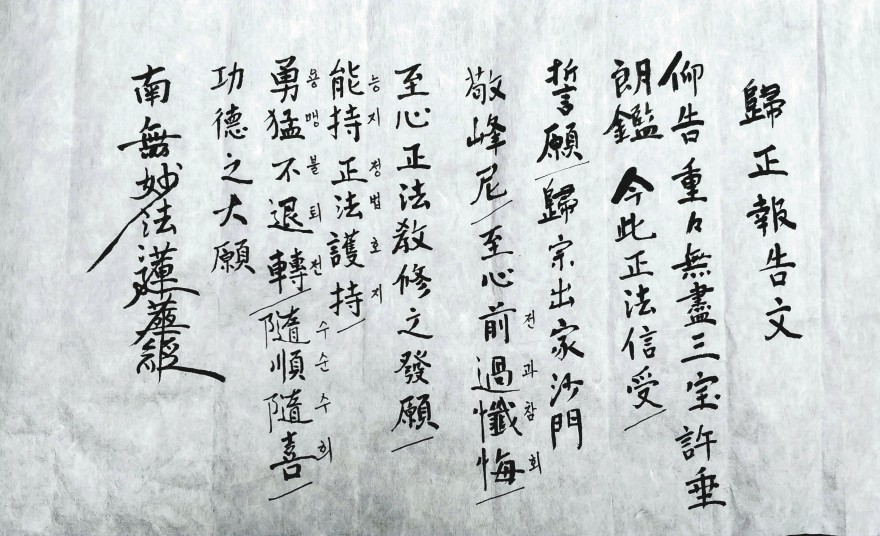 歸正報告文
仰告重々無盡三宝許垂
朗鑑 今此正法信受
誓願 歸宗出家沙門
敬峰尼 至心前過懺悔
전과참회
至心正法教修之發願
能持正法護持
능지정법호지
勇猛不退轉 隨順隨喜
용맹불퇴전 수순수희
功德之大願
南無妙法蓮華經